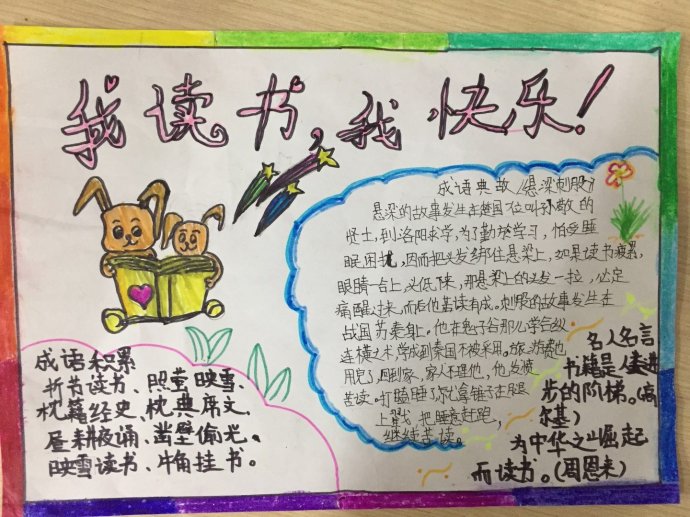 我读书,我快乐!
成语典故《悬梁刺股》
悬梁的故事发生在楚国一位叫孙敬的
贤士,到洛阳求学,为了勤奋学习,怕受睡
眠困扰,因而把头发绑住悬梁上,如果读书疲累,
眼睛一合上,头低下来,那悬梁上的头发一拉,必定
痛醒过来,而后他苦读有成。刺股的故事发生在
战国苏秦身上。他在鬼谷子那儿学合纵
连横之术,学成到秦国不被采用。旅游费也
用完了,回到家,家人不理他,他发愤
苦读。打瞌睡了,就拿锥子在大腿
上戳,把睡意赶跑,
继续苦读。
成语积累
折节读书、照萤映雪、
枕籍经史、枕典席文、
昼耕夜诵、凿壁偷光。
映雪读书、牛角挂书。
名人名言
书籍是人类进
步的阶梯。(高
尔基)
为中华之崛起
而读书。(周恩来)